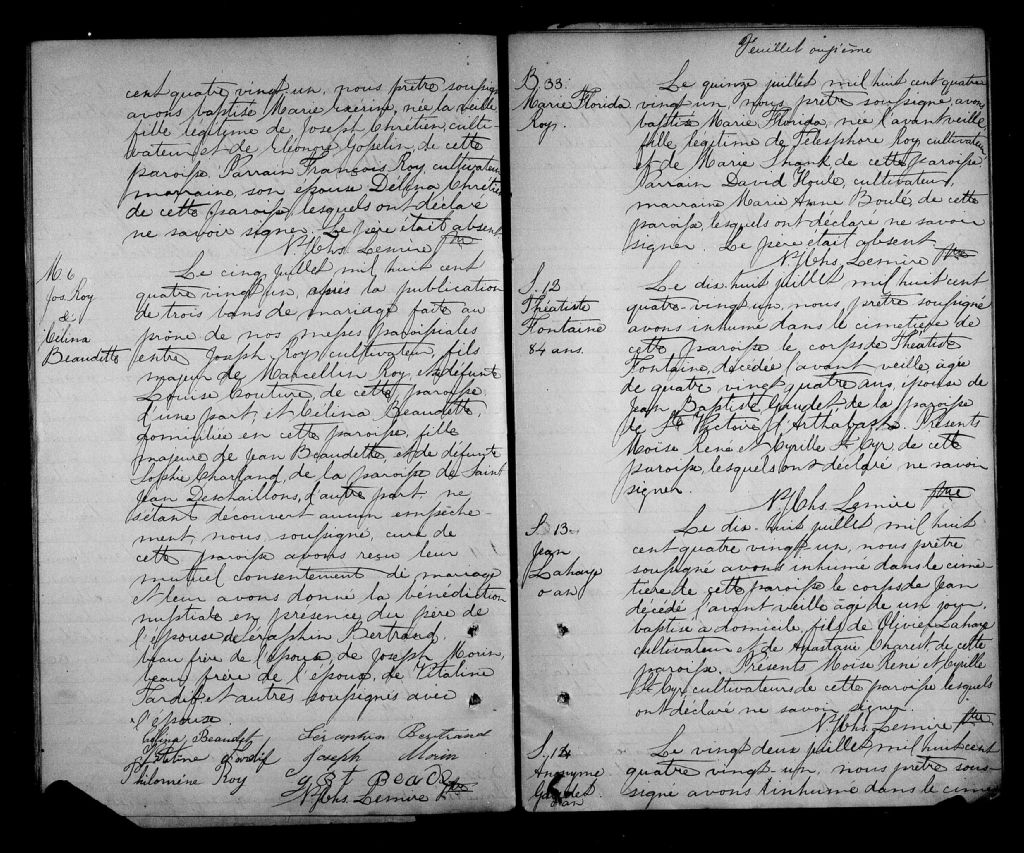 cent quatre vingt un, nous prêtre soussigné
avons baptisé Marie née la veille
fille légitime de Joseph Chrétien, culti-
vateur et de Eléonore Gosselin, de cette
paroisse, Parrain François Roy, cultivateur
marraine, son épouse Delfina Chrétien
de cette paroisse lesquels ont déclaré
ne savoir signer. Le père était absent
N. Chs. Lemire Ptre
M 6
Jos. Roy
&
Célina
Beaudette
Le cinq juillet mil huit cent
quatre vingt un, après la publication
de trois bans de mariage faite au
prône de nos messes paroissiales
entre Joseph Roy, cultivateur, fils
majeur de Marcellin Roy, et défunte
Louise Couture, de cette paroisse,
d'une part, et Célina Beaudette,
domiciliée en cette paroisse, fille
majeure de Jean Beaudette, et de défunte
Sophie Charland, de la paroisse de Saint
Jean Deschaillons, d'autre part, ne
s'étant découvert aucun empêche-
ment, nous, soussigné, curé de
cette paroisse avons reçu leur
mutuel consentement de mariage
et leur avons donné la bénédiction
nuptiale en présence du père de
l'épouse, de Séraphin Bertrand,
beau frère de l'épouse, de Joseph Morin,
beau frère de l'époux, de Vitaline
Tardif et autres soussignés avec
l'épouse.
Célina Beaudet Séraphin Bertrand
Vitaline Tardif Joseph Morin
Philomène Roy J Bt Beaude
N. Chs. Lemire Ptre
Feuillet onzième
B. 33.
Marie Florida
Roy.
Le quinze juillet mil huit cent quatre
vingt un, nous, prêtre soussigné, avons
baptisé Marie Florida, née l'avant veille,
fille légitime de Télesphore Roy, cultivateur
et de Marie Shank de cette paroisse
Parrain David Houle, cultivateur,
marraine Marie Anne Boulé, de cette
paroisse lesquels ont déclaré ne savoir
signer. Le père était absent
N. Chs. Lemire Ptre
S. 12
Théatiste
Fontaine
84 ans.
Le dix huit juillet mil huit cent
quatre-vingt-un, nous, prêtre soussigné
avons inhumé dans le cimetière de
cette paroisse le corps de Théatiste
Fontaine, décédée l'avant veille, âgée
de quatre vingt quatre ans, épouse de
Jean Baptiste Gaudet de la paroisse
de Ste Victoire d'Arthabaska. Présents
Moïse René et Cyrille St Cyr, de cette
paroisse, lesquels ont déclaré ne savoir
signer.
N. Chs. Lemire Ptre
S. 13.
Jean
Laharpe
0 an
Le dix-huit juillet mil huit
cent quatre vingt un, nous, prêtre
soussigné avons inhumé dans le cime-
tière de cette paroisse le corps de Jean
décédé l'avant veille âgé de un jour,
baptisé à domicile, fils de Olivier Laharpe
cultivateur et de Anastasie Charest de cette
paroisse. Présents Moïse René et Cyrille
St Cyr, cultivateurs de cette paroisse lesquels
ont déclaré ne savoir signer.
N. Chs. Lemire Ptre
S. 14
Anonyme
0 an
Le vingt deux juillet mil huit cent
quatre vingt-un, nous, prêtre sous-
signé avons inhumé dans le cime